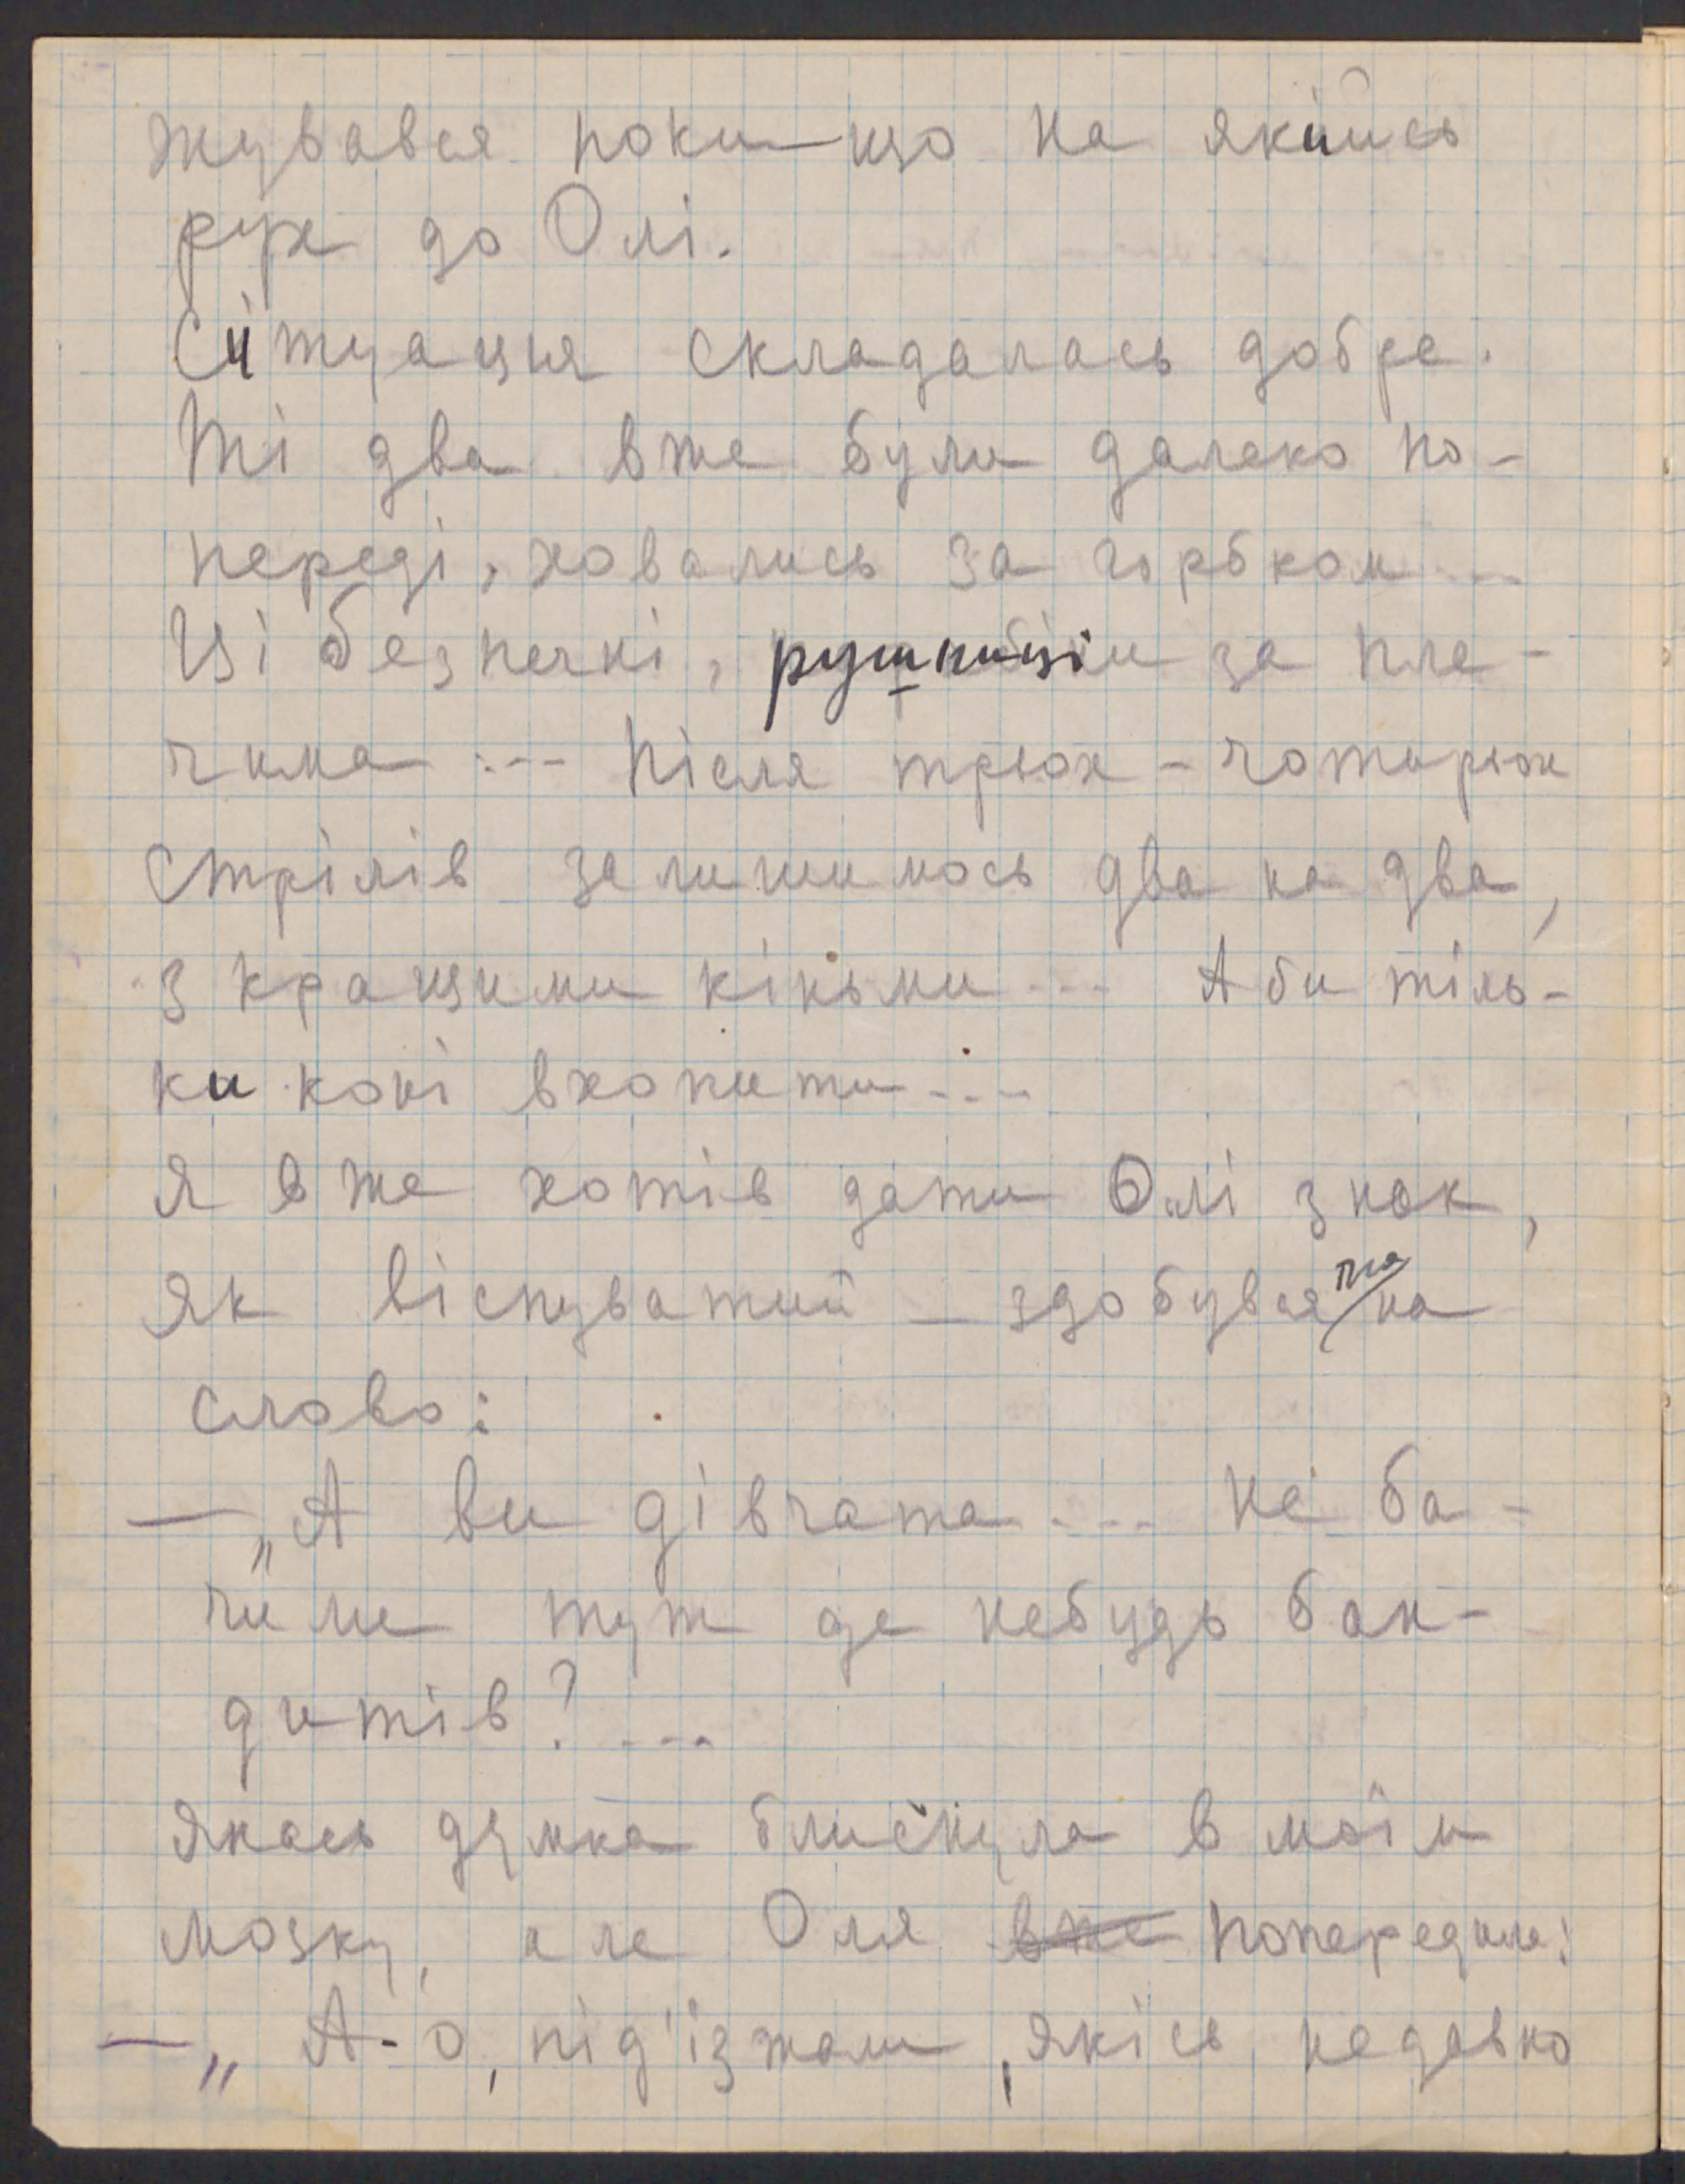 жувався поки що на якийсь
рух до Олі.
Ситуация складалась добре.
Ті два вже були далеко по-
переді, ховались за горбком...
Ці безпечні, рушниці за пле-
чима... Після трьох-чотирьох
стрілів залишилось два на два,
з кращими кіньми... Аби тіль-
ки коні вхопити...
Я вже хотів дати Олі знак,
як віспуватий – здобувся на
слово:
— „А ви дівчата... Не ба-
чили тут де небудь бан-
дитів?...
Якась думка блиснула в моїм
мозку, але Оля вже попередила:
— „А-о, під'їзжали, якісь недавно